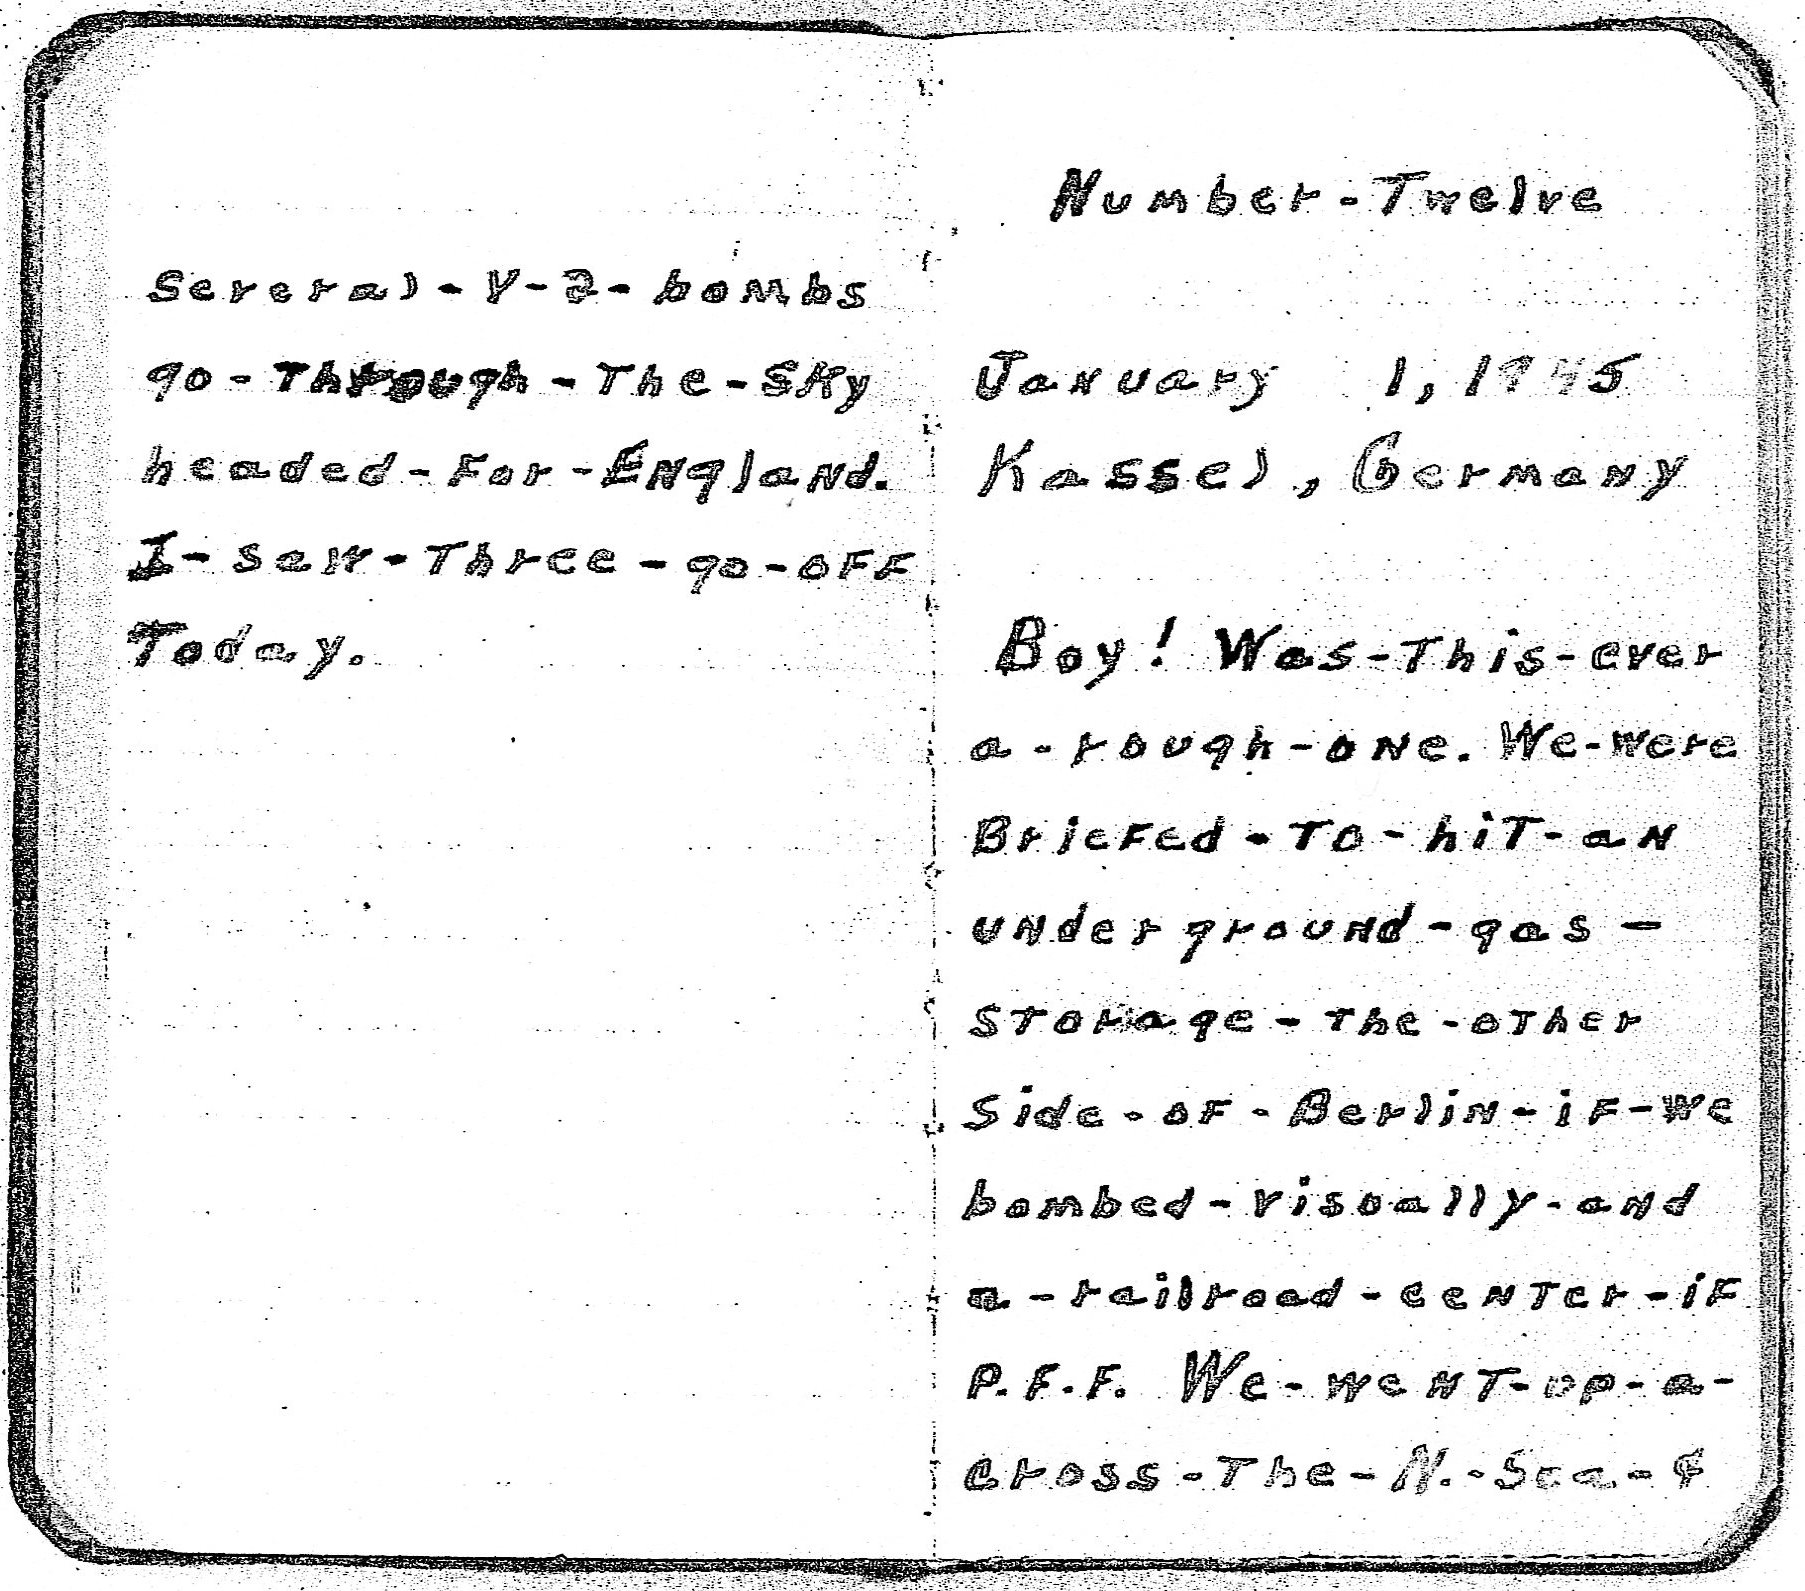 Several-V-2-bombs
go-Through-The-Sky
headed-For-England.
I-saw-Three-go-oFF
Today.
Number-Twelve
January 1, 1945
Kassel, Germany
Boy! Was-This-ever
a-rough-one. We-were
Briefed-To-hiT-an
underground-gas-
STorage-The-oTher
Side-oF-Berlin-iF-we
bombed-visually-and
a-railroad-cenTer-iF
P.F.F. We-wenT-up-a-
cross-The-N.-Sea-&